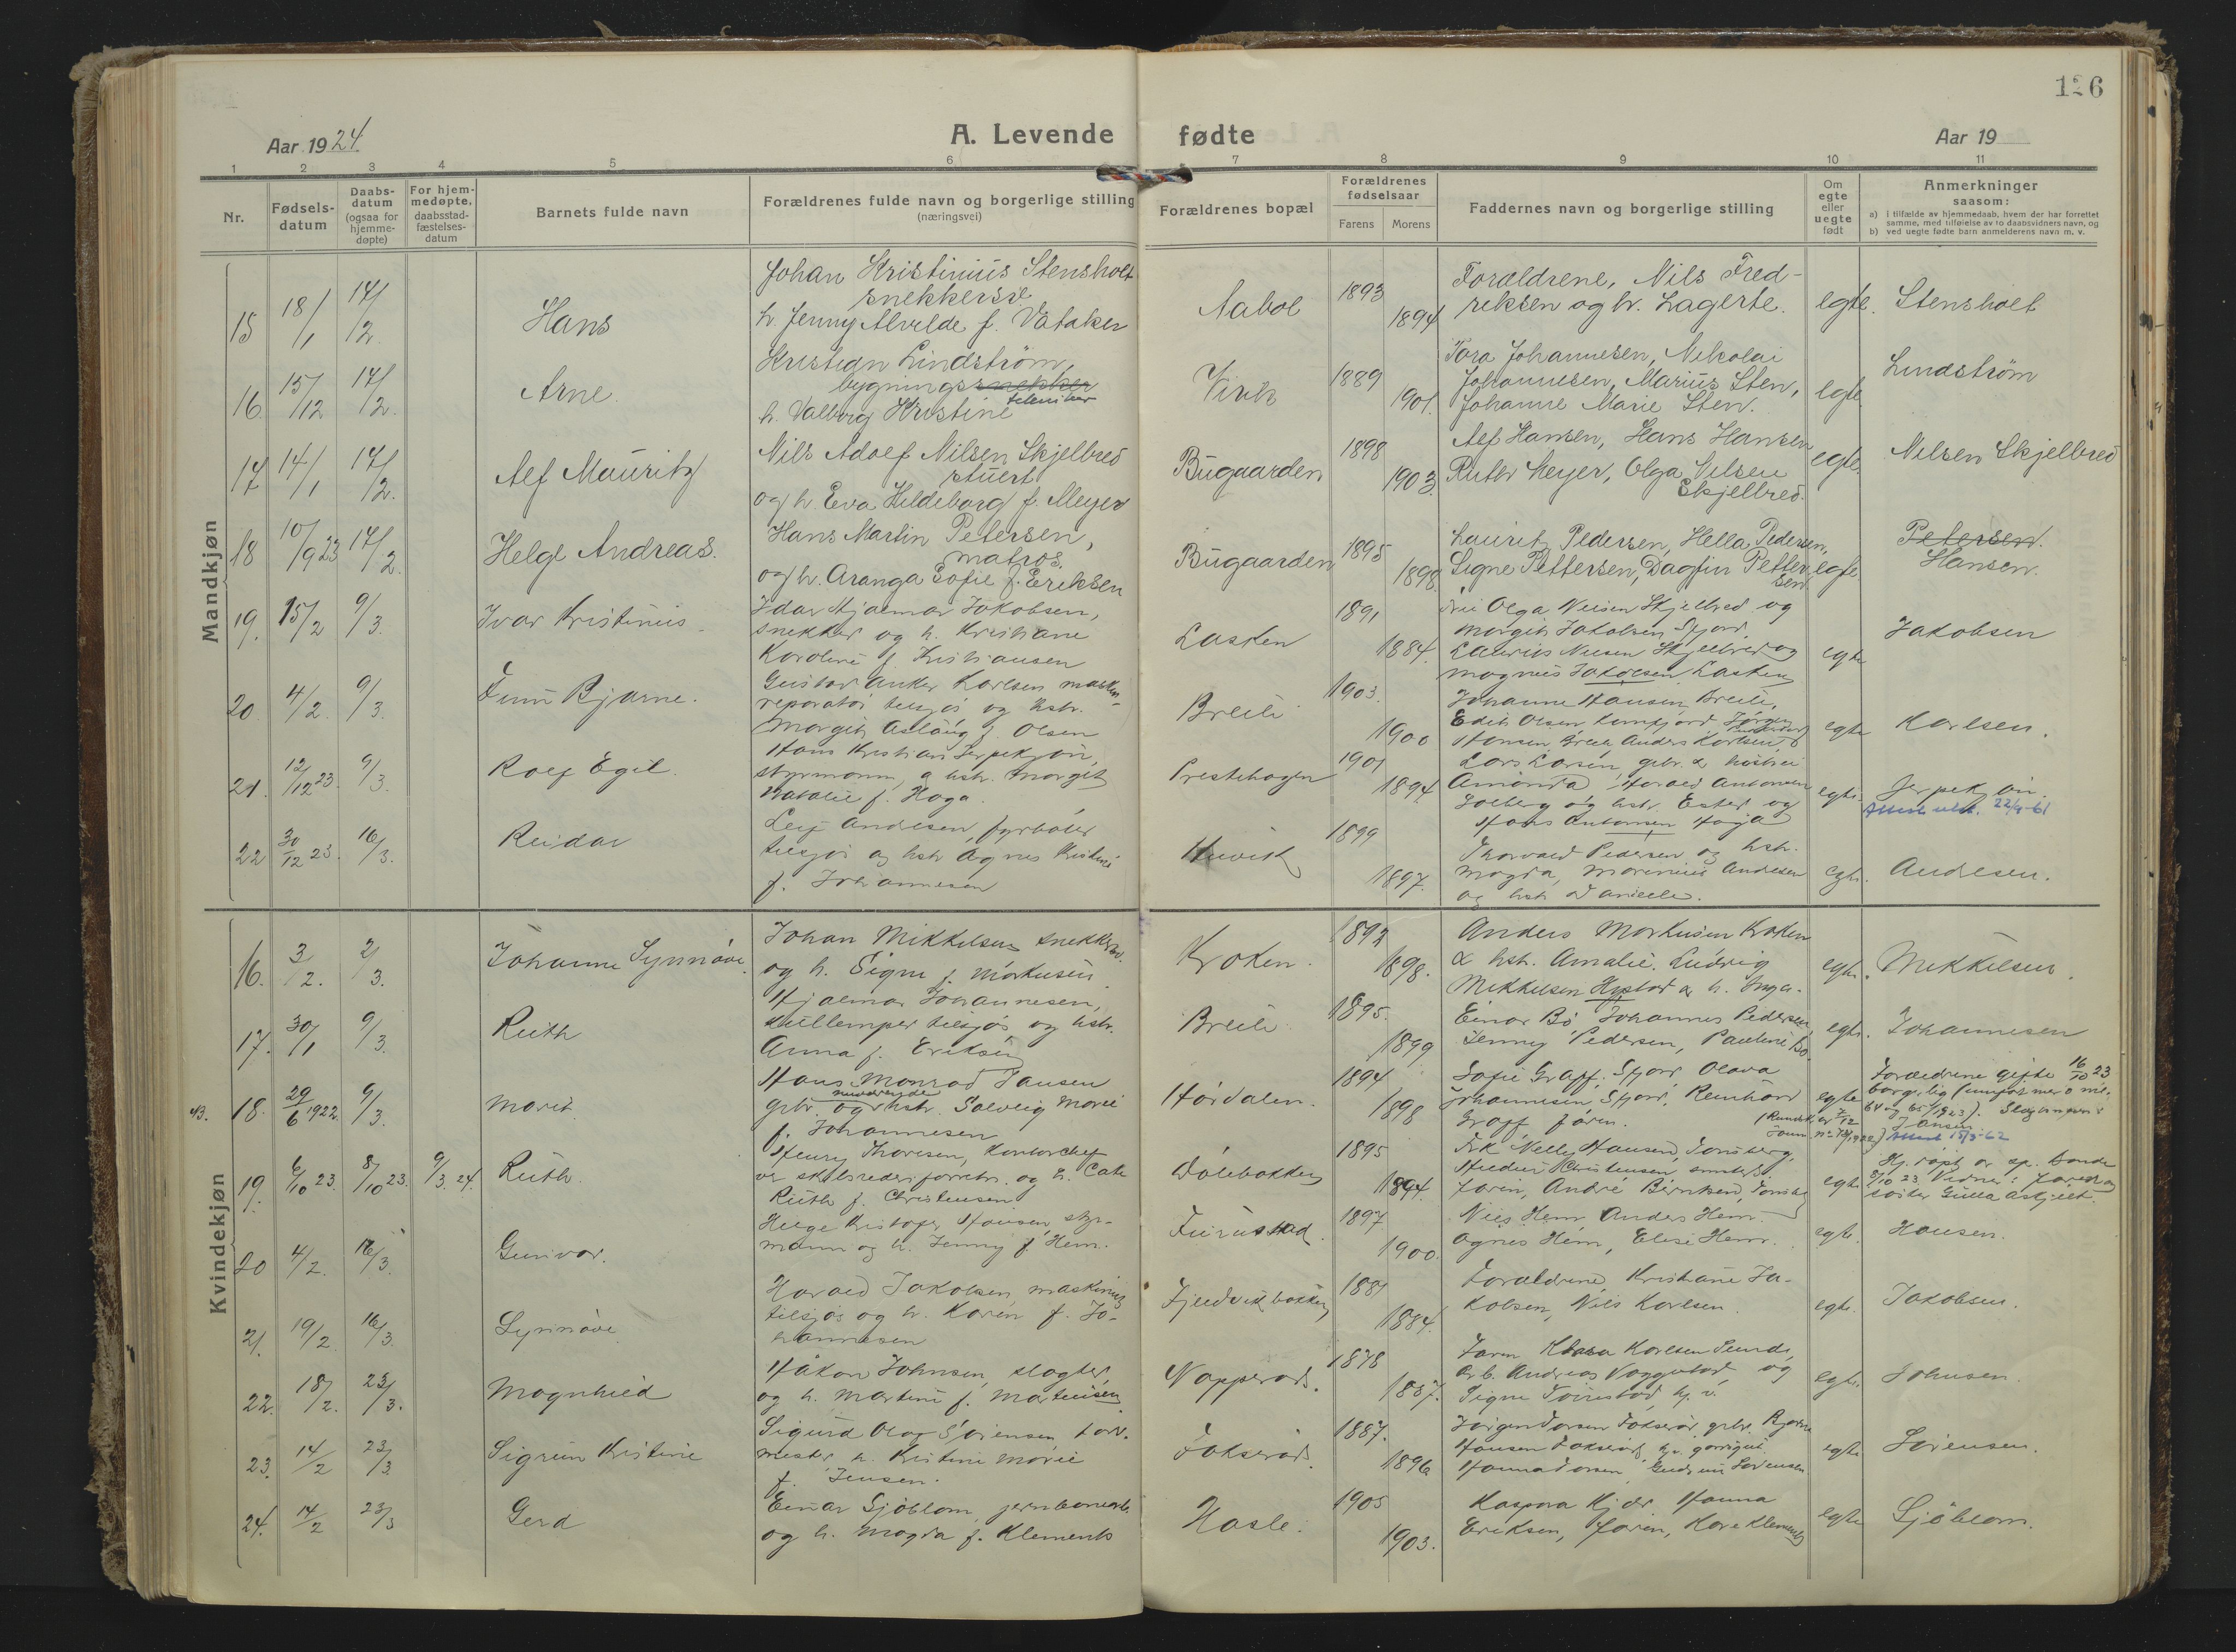 126
Aar 1924.
A. Levende fødte
Aar 19
1 2 3 4 5 6 7 8 9 10 11
Nr.
Fødsels-
datum
Daabs-
datum
(ogsaa for
hjemme-
døpte)
For hjem-
medøpte,
daabsstad-
fæstelses-
datum
Barnets fulde navn
Forældrenes fulde navn og borgerlige stilling
(næringsvei)
Forældrenes bopæl
Forældrenes
fødselsaar
Farens Morens
Faddernes navn og borgerlige stilling
Om
egte
eller
uegte
født
Anmerkninger
saasom:
a) i tilfælde av hjemmedaab, hvem der har forrettet
samme, med tilføielse av to daabsvidners navn, og
b) ved uegte fødte barn anmelderens navn m. v.
Mandkjøn
15 18/1 17/2. Hans
Johan Kristinius Stensholt
h. Jenny Alvilde f. Våtaker
Aabol 1893 1894
Forældrene, Nils Fred-
riksen og h. Lagerte.
egte. Stensholt
16 15/12 17/2. Arne.
Kristian Lindström,
bygningssnekker
tekniker
h. Valborg Kristine
Virik 1889 1901.
Tora Johannesen, Nikolai
Johannesen, Marius Sten,
Johanne Marie Sten.
egte Lindström
17 14/1 17/2. Alf Mauritz
Nils Adolf Nilsen Skjelbred
stuert
og h. Eva Hildeborg f. Meyer
Bugaarden 1898 1903.
Alf Hansen, Hans Hansen
Ruth Meyer, Olga Nilsen
Skjelbred.
egte. Nilsen Skjelbred
18 10/9 23 17/2. Helge Andreas.
Hans Martin Petersen,
matros.
og h. Aranga Sofie f. Eriksen
Bugaarden 1895 1898
Lauritz Pedersen, Hella Pedersen,
Signe Pettersen, Dagfin Petter-
sen.
egte Petersen.
Hansen.
19. 15/2 9/3. Ivar Kristinius
Idar Hjalmar Jakobsen,
snekker og h. Kristiane
Karoline f. Kristiansen
Lasken 1891 1884.
Olga Nilsen Skjelbred og
Margit Jakobsen Fjord,
Laurits Nilsen Skjelbred og
Magnus Jakobsen Lasken
egte Jakobsen
20. 4/2. 9/3. Finn Bjarne.
Gustav Anker Karlsen maskin-
reparatør tilsjøs og hstr.
Margit Aslaug f. Olsen
Breili 1903. 1900
Johanne Hansen Breili,
Edit Olsen Jørgen
Hansen Breili Anders Karlsen,
egte Karlsen.
21. 12/12 23. 9/3. Rolf Egil.
Hans Kristian Jerpekjøn,
styrmann, og hstr. Margit
Natalie f. Haga.
Prestehagen 1901 1894
Lars Larsen, gbr. &
Amanda, Harald Antonsen
Solberg og hstr. Ester og
Hans Antonsen Haga
egte. Jerpekjøn.
22. 30/12 23. 16/3. Reidar
Leif Andresen, fyrbøter
tilsjøs og hstr Agnes Kristine
f. Johannesen
1899 1897.
Thorvald Pedersen og hstr.
Magda, Marinius Andresen
og hstr Danielle.
egte. Andresen.
Kvindekjøn
16. 3/2. 2/3. Johanne Synnøve.
Johan Mikkelsen snekker.
og h. Signe f. Markusen
Kroken. 1892 1898.
Anders Markusen Kroken
& hstr. Amalie. Ludvig
Mikkelsen Hystad & h. Inga.
egte. Mikkelsen.
17. 30/1 9/3. Ruth
Hjalmar Johannesen,
kullemper tilsjøs og hstr.
Anna f. Eriksen
Breili 1895. 1899
Einar Bø, Johannes Pedersen,
Jenny Pedersen, Pauline Bø.
egte. Johannesen
43. 18. 29/6 1922. 9/3. Marit.
Hans Monrad Jansen
gbr. og hstr. Solveig Marie
f. Johannesen
Hørdalen. 1894 1898
Sofie Graff, Fjord, Olava
Johannesen Fjord, Reinhard
Graff faren.
egte Forældrene gifte 16/10 23
borgerlig
Jansen
Attest 15/3-62
19. 6/10 23. 8/10 23. 9/3. 24. Ruth.
Henry Thoresen, kontorchef
ved skibsrederforretn. og h. Cate
Ruth f. Christensen
Dølebakken 1895 1894.
Frk Nelly Hansen, Tønsberg,
Christensen
faren, André Bernhsen, Tønsberg
egte
20 4/2. 16/3. Gunvor.
Helge Kristofer Hansen, styr-
mann og h. Jenny f. Hem.
Furustad. 1897 1900.
Nils Hem Anders Hem.
Agnes Hem, Elise Hem.
egte. Hansen.
21. 19/2. 16/3. Synnøve
Harald Jakobsen, maskinist
tilsjøs og h. Karen f. Jo-
hannesen
Fjeldvikbakken 1881 1884.
Forældrene, Kristiane Ja-
kobsen, Niels Karlsen.
egte. Jakobsen.
22. 18/2. 23/3. Magnhild
Håkon Johnsen, slagter,
og h. Martine f. Martinsen
Napperød. 1878 1887.
Faren Klara Karlsen
Arb. Andreas og
Signe
egte. Johnsen.
23. 14/2 23/3. Sigrun Kristine
Sigurd Olaf Sørensen,
h. Kristine Marie
f. Jensen.
Fokserød. 1887. 1896
Fokserød, gbr. Bjarne
Hansen Fokserød,
Hanna Gudrun Sørensen
egte Sørensen.
24. 14/2 23/3 Gerd
Einar Sjöblom, jernbanearb.
og h. Magda f. Klements
Hasle. 1905 1903.
Kaspara Hanna
Eriksen, faren, Kare Klements
egte Sjöblom.